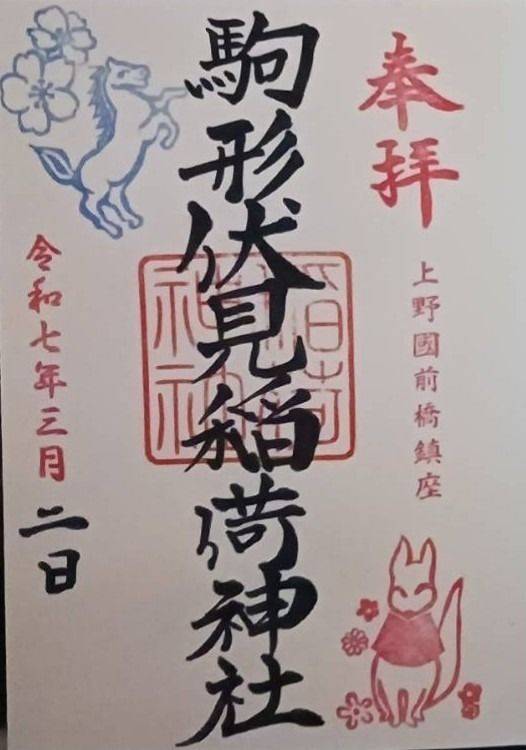 奉拝
上野國前橋鎮座
駒形伏見稲荷神社
稲荷
神社
令和七年三月二日